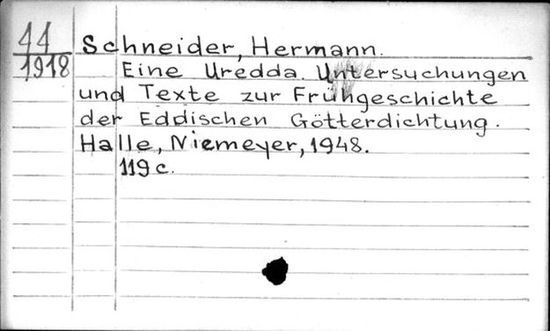 11
1918
Schneider, Hermann.
Eine Uredda. Untersuchungen
und Texte zur Frühgeschichte
der Eddischen Götterdichtung.
Halle, Niemeyer, 1948.
119 c.